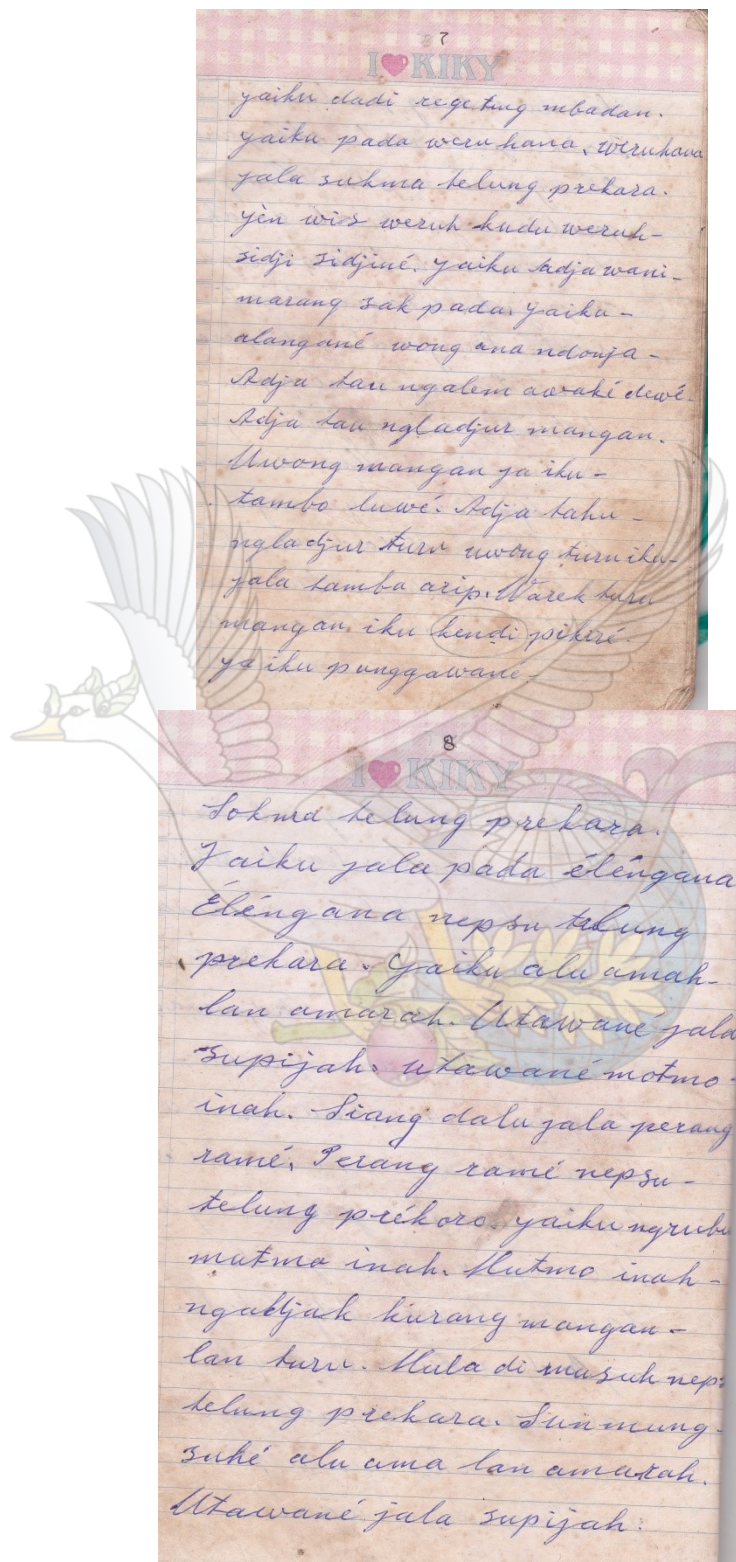 7
I KIKY
yaiku dadi regeting mbadan.
yaiku pada weru hana, weruhana
jala sukma telung prekara.
yèn wis weruh kudu weruh-
sidji sidjiné. yaiku Adja wani-
marang sak pada. yaiku -
alangané wong ana ndonja -
Adja tau ngalem awaké dewé.
Adja tau ngladjur mangan.
Uwong mangan ja iku -
tambo luwé. Adja tahu -
ngladjur turu uwong turu iku-
jala tamba arip. Warek turu
mangan iku kendi pikiré.
ya iku punggawane -
8
I KIKY
Sokma telung prekara.
Yaiku jala pada éléngana
Éléngana nepsu telung
prekara. Yaiku alu amah-
lan amarah. Utawané jala
supijah. utawané motmo-
inah. Siang dalu jala perang
ramé, Perang ramé nepsu-
telung prékoro. yaiku ngrubu
mutmo inah. Mutmo inah -
ngadjak kurang mangan -
lan turu. Mula di musuh neps
telung prekara. Sun mung-
suhé alu ama lan amarah.
Utawané jala supijah.